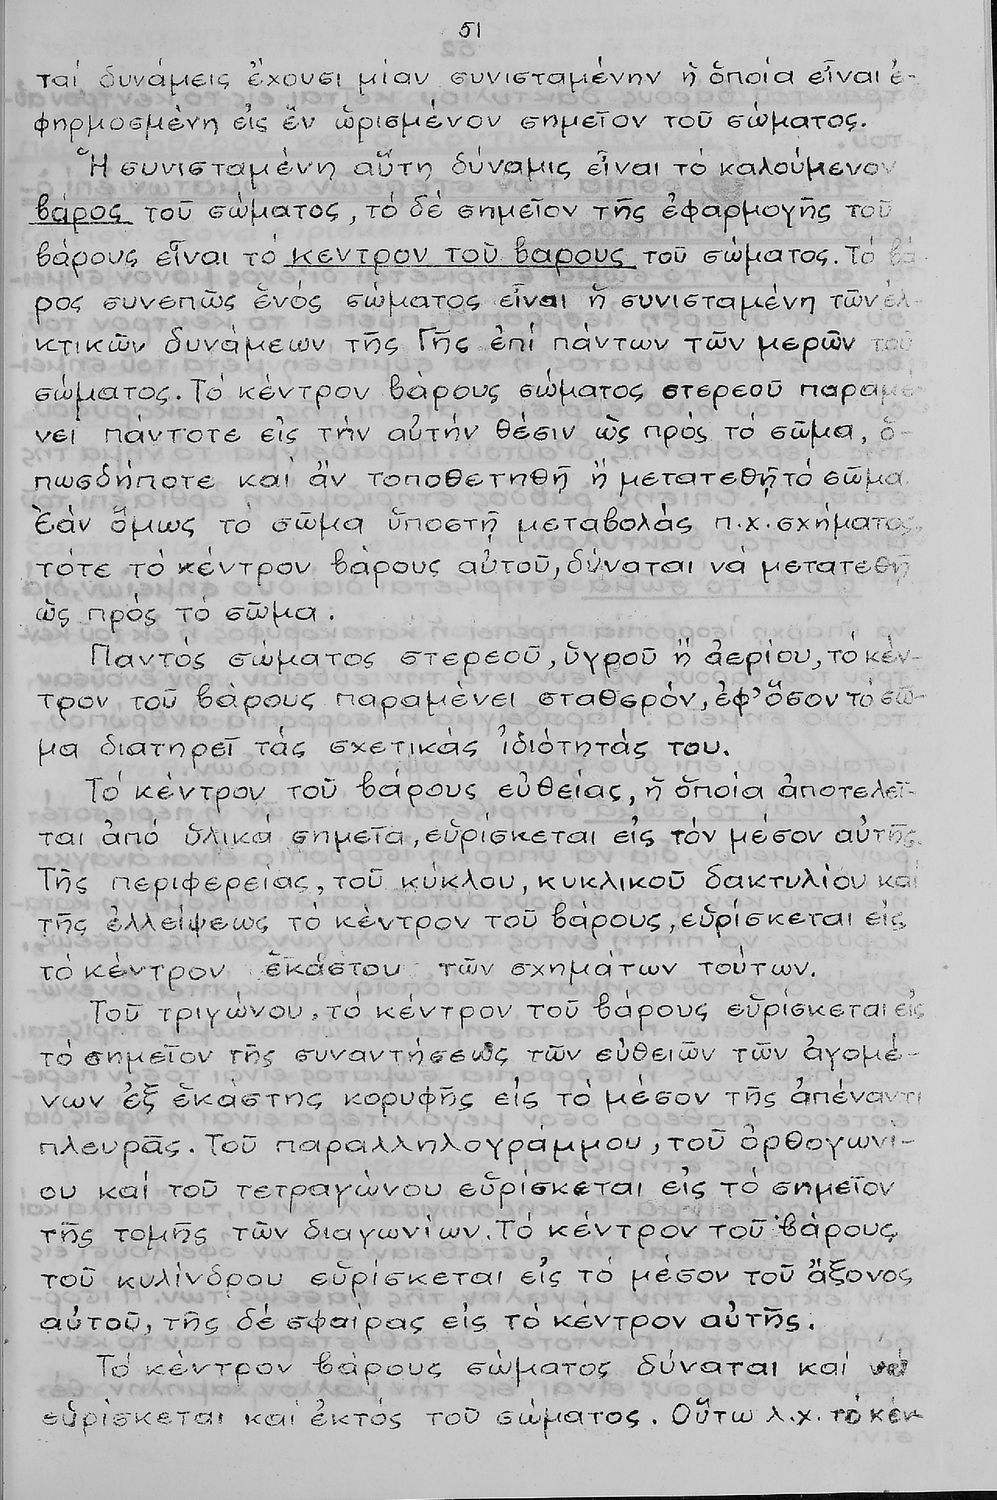 51
ταί δυνάμεις ἔχουσι μίαν συνισταμένην ἡ ὁποία εἶναι ἐ-
φηρμοσμένη εἰς ἕν ὡρισμένον σημεῖον τοῦ σώματος.
Ἡ συνισταμένη αὕτη δύναμις εἶναι τό καλούμενον
βάρος τοῦ σώματος, τό δέ σημεῖον τῆς ἐφαρμογῆς τοῦ
βάρους εἶναι τό κεντρον τοῦ βαρους τοῦ σώματος. Τό βά-
ρος συνεπῶς ἑνός σώματος εἶναι ἡ συνισταμένη τῶν ἑλ-
κτικῶν δυνάμεων τῆς Γῆς ἐπί πάντων τῶν μερῶν τοῦ
σώματος. Τό κέντρον βάρους σώματος στερεοῦ παραμέ-
νει πάντοτε εἰς τήν αὐτήν θέσιν ὡς πρός τό σῶμα, ὁ-
πωσδήποτε καί ἄν τοποθετηθῆ ἤ μετατεθῆ τό σῶμα.
Ἐάν ὅμως τό σῶμα ὑποστῆ μεταβολάς π.χ. σχήματος,
τότε τό κέντρον βάρους αὐτοῦ, δύναται νά μετατεθῆ
ὡς πρός τό σῶμα.
Παντός σώματος στερεοῦ, ὑγροῦ ἤ ἀερίου, τό κέν-
τρον τοῦ βάρους παραμένει σταθερόν, ἐφ' ὅσον τό σῶ-
μα διατηρεῖ τάς σχετικάς ἰδιότητάς του.
Τό κέντρον τοῦ βάρους εὐθείας, ἡ ὁποία ἀποτελεῖ-
ται ἀπό ὑλικά σημεῖα, εὑρίσκεται εἰς τόν μέσον αὐτῆς.
Τῆς περιφερείας, τοῦ κύκλου, κυκλικοῦ δακτυλίου καί
τῆς ἐλλείψεως τό κέντρον τοῦ βάρους, εὑρίσκεται εἰς
τό κέντρον ἑκάστου τῶν σχημάτων τούτων.
Τοῦ τριγώνου, τό κέντρον τοῦ βάρους εὑρίσκεται εἰς
τό σημεῖον τῆς συναντήσεως τῶν εὐθειῶν τῶν ἀγομέ-
νων ἐξ ἑκάστης κορυφῆς εἰς τό μέσον τῆς ἀπέναντι
πλευρᾶς. Τοῦ παραλληλογράμμου, τοῦ ὀρθογωνί-
ου καί τοῦ τετραγώνου εὑρίσκεται εἰς τό σημεῖον
τῆς τομῆς τῶν διαγωνίων. Τό κέντρον τοῦ βάρους
τοῦ κυλίνδρου εὑρίσκεται εἰς τό μέσον τοῦ ἄξονος
αὐτοῦ, τῆς δέ σφαίρας εἰς τό κέντρον αὐτῆς.
Τό κέντρον βάρους σώματος δύναται καί νά
εὑρίσκεται καί ἐκτός τοῦ σώματος. Οὕτω λ.χ. τό κέν-